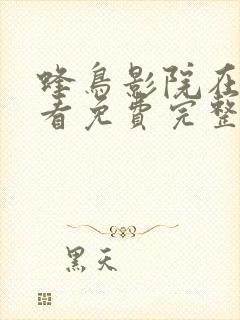 蜂鳥影院在
看免費完整
黑天